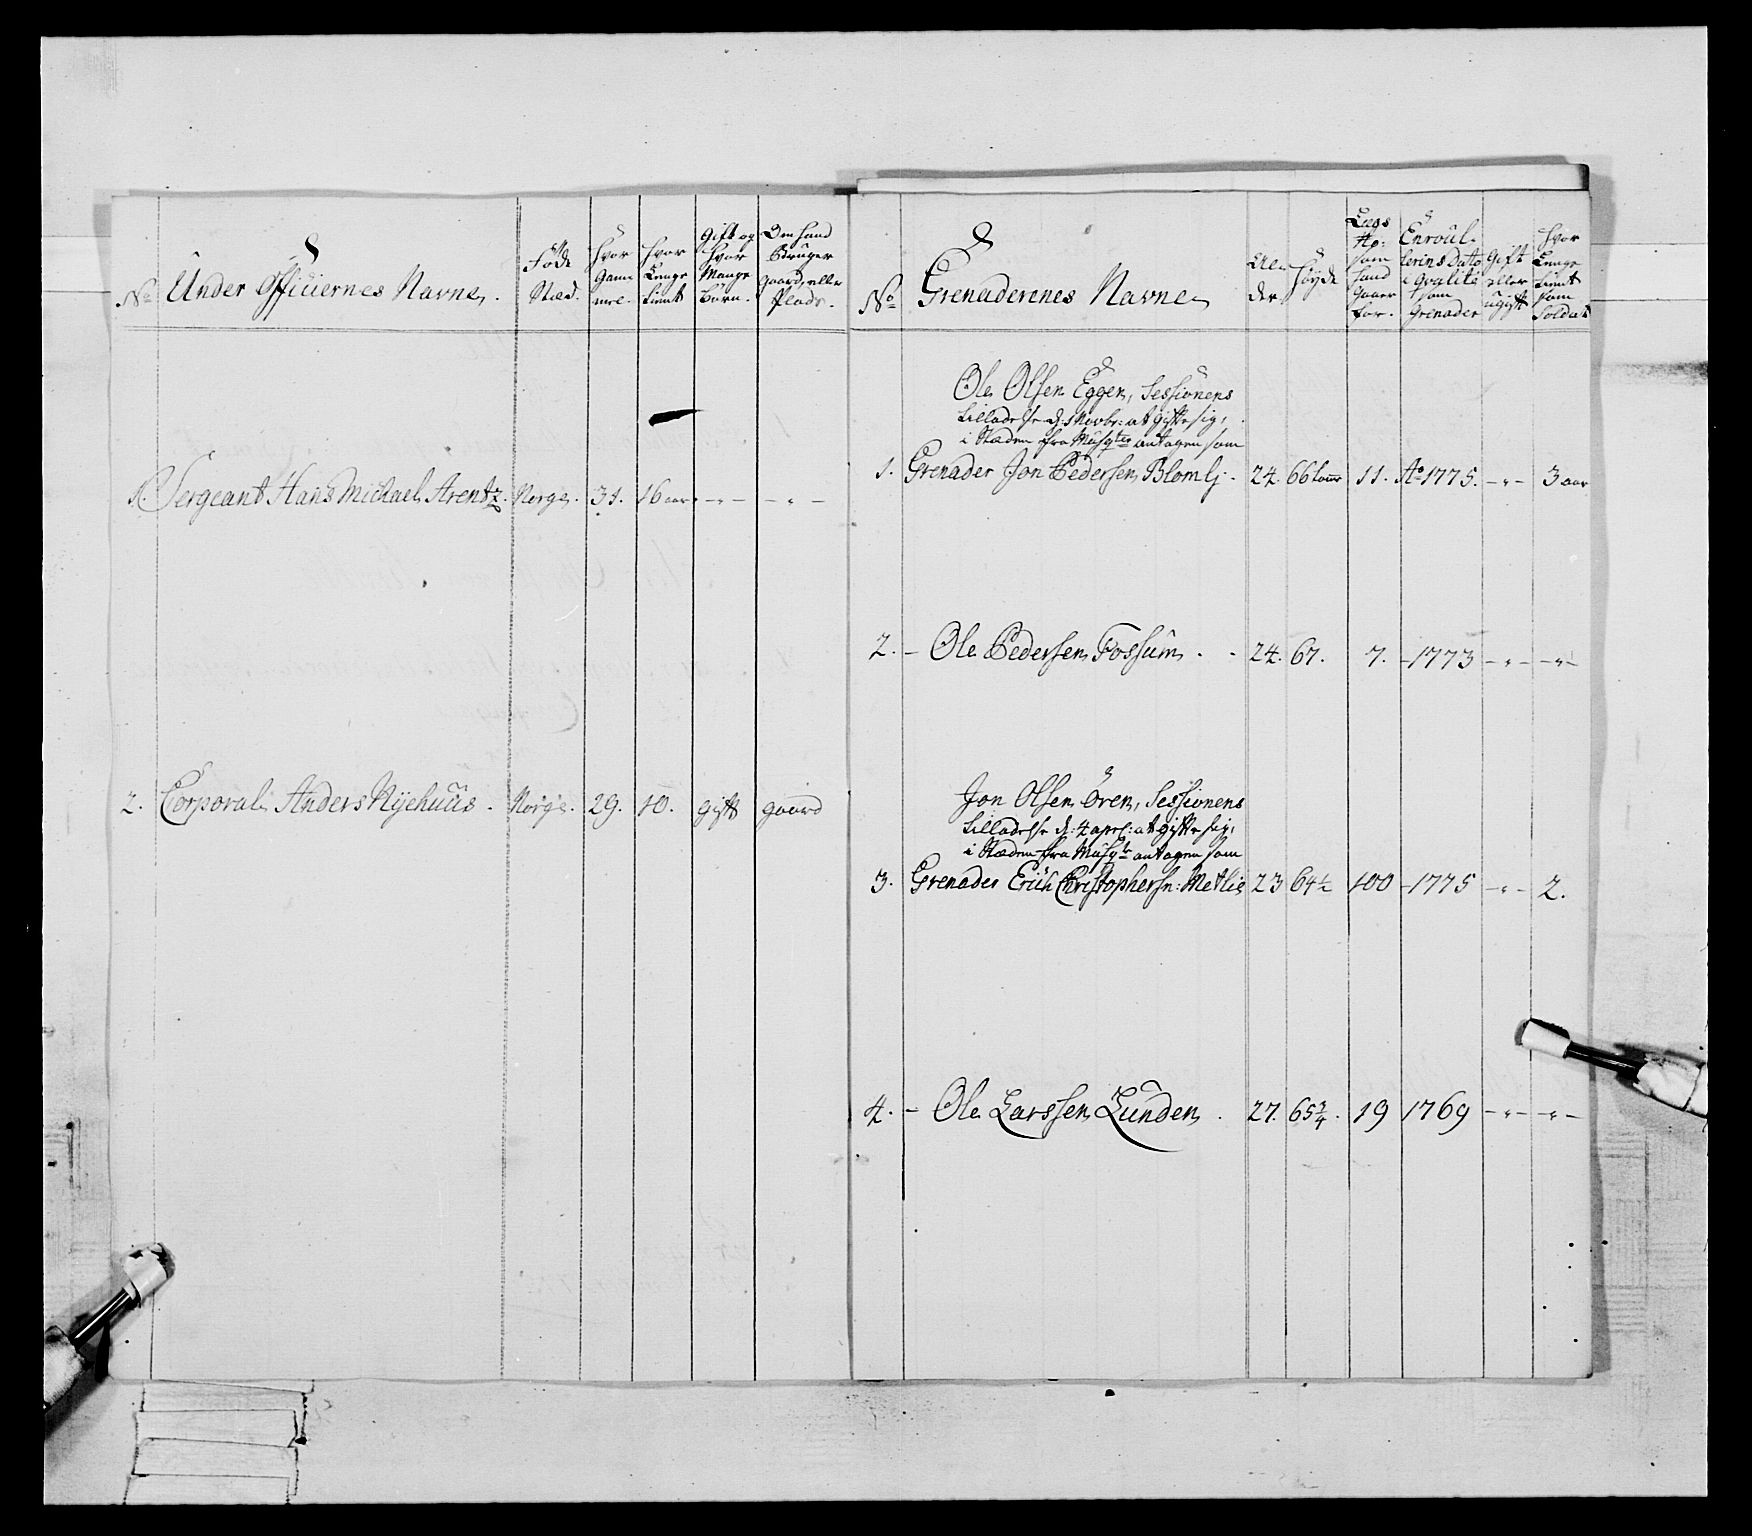 No
Under Officiernes Navne.
Føde
Stæd.
Hvor
Gam̅
mel.
Hvor
Længe
tient
Gift og
Hvor
Mange
Børn.
Om hand
Bruger
gaard, eller
Plads.
1. Sergeant Hans Michael Arentz. Norge. 31. 16 aar. - „ - - „ -
2. Corporal Anders Nyehuus. Norge. 29. 10. gift gaard
No
Grenaderenes Navne
Al-
der.
Høyde
Lægs
No:
som
hand
gaaer
for.
Enroul-
lerins Datto
i Qvalité
som
Grenader
Gift
eller
ugift
Hvor
Længe
tient
som
Soldat
Ole Olsen Eggen, Sessionens
tilladelse d: 1 Novbr: at gifte sig,
i Stæden fra Musqter antagen som
1. Grenader Jon Pedersen Blomlj. 24. 66 tom̅r 11. Ao 1775. - „ - 3 aar
2. - Ole Pedersen Fossum. - 24. 67. 7. - 1773 - „ - - „ -
Jon Olsen Øren, Sessionens
tilladelse d: 4 aprl: at gifte sig,
i Stæden fra Musqtr antagen som
3. Grenader Erich Christophersn: Metlie 23 64½ 100 - 1775 - „ - 2.
4. - Ole Larssen Lunden. 27. 65¾. 19 1769 - „ - - „ -